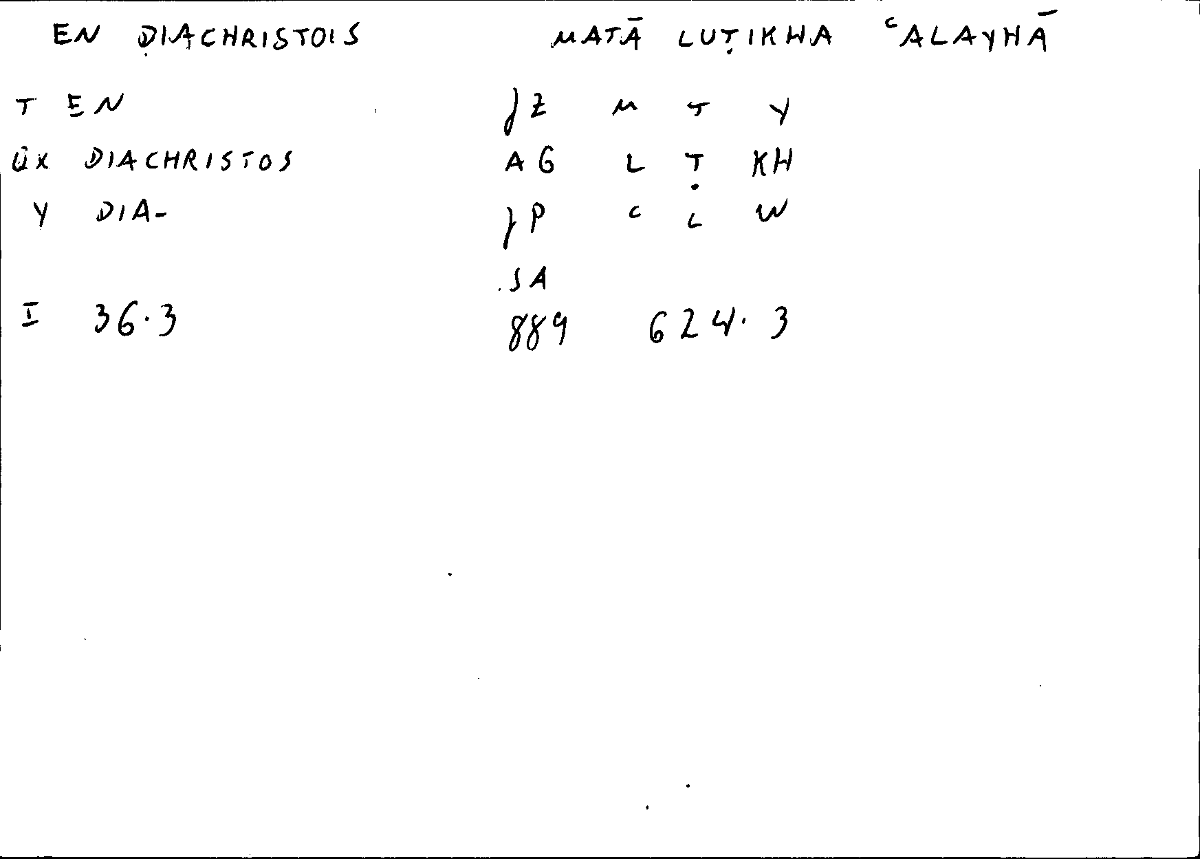 EN DIACHRISTOIS MATĀ LUṬIKHA ᶜALAYHĀ
T EN JZ M T Y
ÜX DIACHRISTOS AG L Ṭ KH
Y DIA- JP ᶜ L W
SA
I 36.3 889 624.3